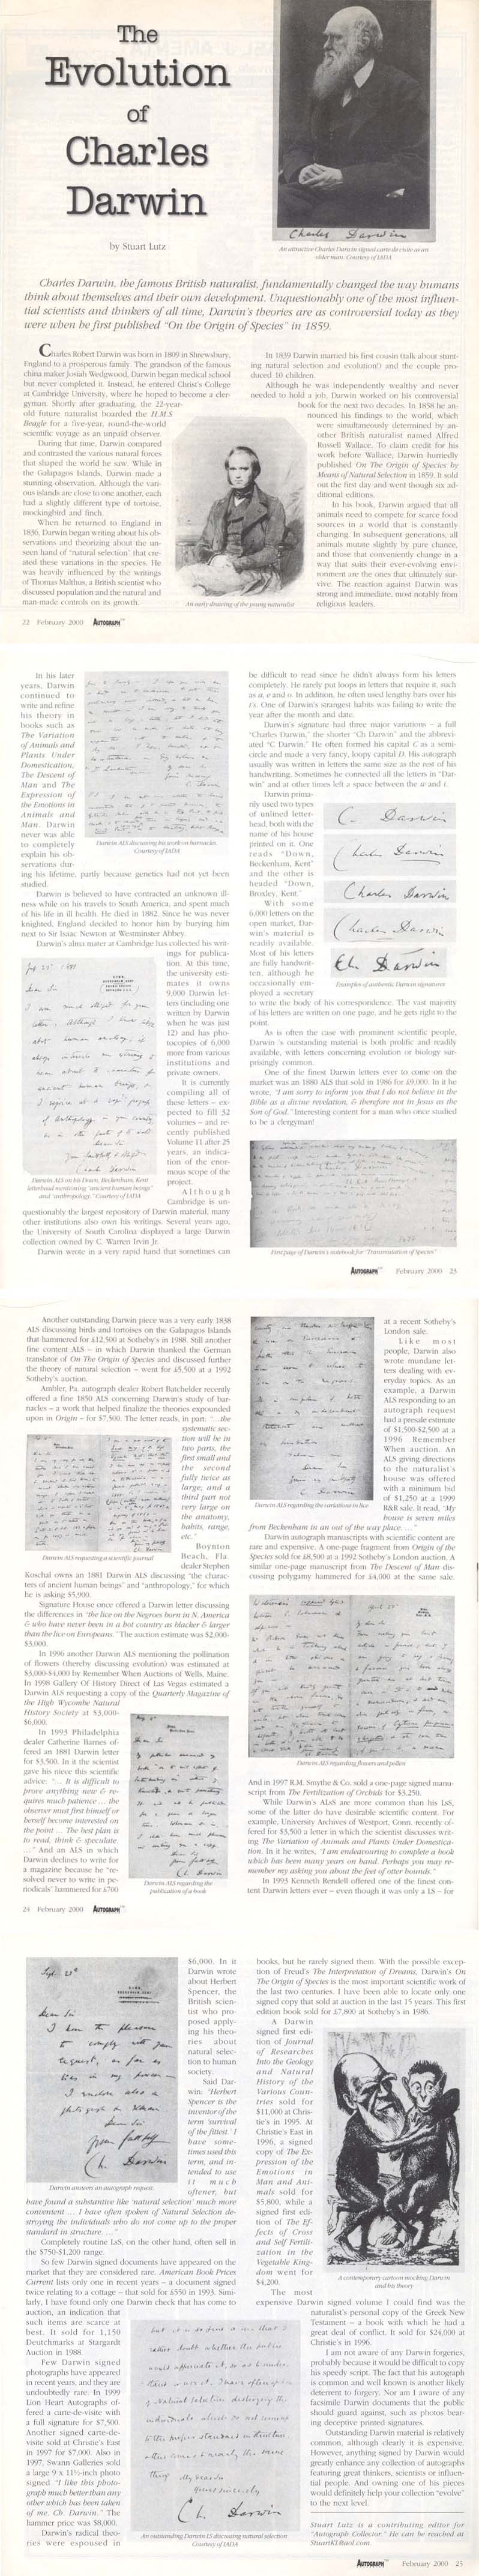 The
Evolution
of
Charles
Darwin
by Stuart Lutz
Charles Darwin
An attractive Charles Darwin signed carte de visite as an
older man. Courtesy of IADA
Charles Darwin, the famous British naturalist, fundamentally changed the way humans
think about themselves and their own development. Unquestionably one of the most influen-
tial scientists and thinkers of all time, Darwin's theories are as controversial today as they
were when he first published "On the Origin of Species" in 1859.
Charles Robert Darwin was born in 1809 in Shrewsbury,
England to a prosperous family. The grandson of the famous
china maker Josiah Wedgwood, Darwin began medical school
but never completed it. Instead, he entered Christ's College
at Cambridge University, where he hoped to become a cler-
gyman. Shortly after graduating, the 22-year-
old future naturalist boarded the H.M.S
Beagle for a five-year, round-the-world
scientific voyage as an unpaid observer.
During that time, Darwin compared
and contrasted the various natural forces
that shaped the world he saw. While in
the Galapagos Islands, Darwin made a
stunning observation. Although the vari-
ous islands are close to one another, each
had a slightly different type of tortoise,
mockingbird and finch.
When he returned to England in
1836, Darwin began writing about his ob-
servations and theorizing about the un-
seen hand of "natural selection" that cre-
ated these variations in the species. He
was heavily influenced by the writings
of Thomas Malthus, a British scientist who
discussed population and the natural and
man-made controls on its growth.
An early drawing of the young naturalist
In 1839 Darwin married his first cousin (talk about stunt-
ing natural selection and evolution!) and the couple pro-
duced 10 children.
Although he was independently wealthy and never
needed to hold a job, Darwin worked on his controversial
book for the next two decades. In 1858 he an-
nounced his findings to the world, which
were simultaneously determined by an-
other British naturalist named Alfred
Russell Wallace. To claim credit for his
work before Wallace, Darwin hurriedly
published On The Origin of Species by
Means of Natural Selection in 1859. It sold
out the first day and went though six ad-
ditional editions.
In his book, Darwin argued that all
animals need to compete for scarce food
sources in a world that is constantly
changing. In subsequent generations, all
animals mutate slightly by pure chance,
and those that conveniently change in a
way that suits their ever-evolving envi-
ronment are the ones that ultimately sur-
vive. The reaction against Darwin was
strong and immediate, most notably from
religious leaders.
22 February 2000 AUTOGRAPH
In his later
years, Darwin
continued to
write and refine
his theory in
books such as
The Variation
of Animals and
Plants Under
Domestication,
The Descent of
Man and The
Expression of
the Emotions in
Animals and
Man. Darwin
never was able
to completely
explain his ob-
servations dur-
ing his lifetime, partly because genetics had not yet been
studied.
Darwin ALS discussing his work on barnacles.
Courtesy of IADA
Darwin is believed to have contracted an unknown ill-
ness while on his travels to South America, and spent much
of his life in ill health. He died in 1882. Since he was never
knighted, England decided to honor him by burying him
next to Sir Isaac Newton at Westminster Abbey.
Darwin's alma mater at Cambridge has collected his writ-
ings for publica-
tion. At this time,
the university esti-
mates it owns
9,000 Darwin let-
ters (including one
written by Darwin
when he was just
12) and has pho-
tocopies of 6,000
more from various
institutions and
private owners.
It is currently
compiling all of
these letters – ex-
pected to fill 32
volumes – and re-
cently published
Volume 11 after 25
years, an indica-
tion of the enor-
mous scope of the
project.
Although
Cambridge is un-
questionably the largest repository of Darwin material, many
other institutions also own his writings. Several years ago,
the University of South Carolina displayed a large Darwin
collection owned by C. Warren Irvin Jr.
Darwin wrote in a very rapid hand that sometimes can
Darwin ALS on his Down, Beckenham, Kent
letterhead mentioning "ancient human beings"
and "anthropology." Courtesy of IADA
be difficult to read since he didn't always form his letters
completely. He rarely put loops in letters that require it, such
as a, e and o. In addition, he often used lengthy bars over his
t's. One of Darwin's strangest habits was failing to write the
year after the month and date.
Darwin's signature had three major variations – a full
"Charles Darwin," the shorter "Ch Darwin" and the abbrevi-
ated "C Darwin." He often formed his capital C as a semi-
circle and made a very fancy, loopy capital D. His autograph
usually was written in letters the same size as the rest of his
handwriting. Sometimes he connected all the letters in "Dar-
win" and at other times left a space between the w and i.
Darwin prima-
rily used two types
of unlined letter-
head, both with the
name of his house
printed on it. One
reads "Down,
Beckenham, Kent"
and the other is
headed "Down,
Broxley, Kent."
With some
6,000 letters on the
open market, Dar-
win's material is
readily available.
Most of his letters
are fully handwrit-
ten, although he
occasionally em-
ployed a secretary
to write the body of his correspondence. The vast majority
of his letters are written on one page, and he gets right to the
point.
C. Darwin
Charles Darwin
Charles Darwin
Charles Darwin
Ch. Darwin
Examples of authentic Darwin signatures
As is often the case with prominent scientific people,
Darwin 's outstanding material is both prolific and readily
available, with letters concerning evolution or biology sur-
prisingly common.
One of the finest Darwin letters ever to come on the
market was an 1880 ALS that sold in 1986 for £9,000. In it he
wrote, "I am sorry to inform you that I do not believe in the
Bible as a divine revelation, & therefore not in Jesus as the
Son of God." Interesting content for a man who once studied
to be a clergyman!
First page of Darwin's notebook for "Transmutation of Species"
AUTOGRAPH February 2000 23
Another outstanding Darwin piece was a very early 1838
ALS discussing birds and tortoises on the Galapagos Islands
that hammered for £12,500 at Sotheby's in 1988. Still another
fine content ALS – in which Darwin thanked the German
translator of On The Origin of Species and discussed further
the theory of natural selection – went for £6,500 at a 1992
Sotheby's auction.
Ambler, Pa. autograph dealer Robert Batchelder recently
offered a fine 1850 ALS concerning Darwin's study of bar-
nacles – a work that helped finalize the theories expounded
upon in Origin – for $7,500. The letter reads, in part: "...the
systematic sec-
tion will be in
two parts, the
first small and
the second
fully twice as
large; and a
third part not
very large on
the anatomy,
habits, range,
etc."
Darwin ALS requesting a scientific journal
Boynton
Beach, Fla.
dealer Stephen
Koschal owns an 1881 Darwin ALS discussing "the charac-
ters of ancient human beings" and "anthropology," for which
he is asking $5,900.
Signature House once offered a Darwin letter discussing
the differences in "the lice on the Negroes born in N. America
& who have never been in a hot country as blacker & larger
than the lice on Europeans." The auction estimate was $2,000-
$3,000.
In 1996 another Darwin ALS mentioning the pollination
of flowers (thereby discussing evolution) was estimated at
$3,000-$4,000 by Remember When Auctions of Wells, Maine.
In 1998 Gallery Of History Direct of Las Vegas estimated a
Darwin ALS requesting a copy of the Quarterly Magazine of
the High Wycombe Natural
History Society at $3,000-
$6,000.
In 1993 Philadelphia
dealer Catherine Barnes of-
fered an 1881 Darwin letter
for $3,500. In it the scientist
gave his niece this scientific
advice: "... It is difficult to
prove anything new & re-
quires much patience ... the
observer must first himself or
herself become interested on
the point ... The best plan is
to read, think & speculate.
..." And an ALS in which
Darwin declines to write for
a magazine because he "re-
solved never to write in pe-
riodicals" hammered for £700
Darwin ALS regarding the
publication of a book
Darwin ALS regarding the variations in lice
at a recent Sotheby's
London sale.
Like most
people, Darwin also
wrote mundane let-
ters dealing with ev-
eryday topics. As an
example, a Darwin
ALS responding to an
autograph request
had a presale estimate
of $1,500-$2,500 at a
1996 Remember
When auction. An
ALS giving directions
to the naturalist's
house was offered
with a minimum bid
of $1,250 at a 1999
R&R sale. It read, "My
house is seven miles
from Beckenham in an out of the way place. ..."
Darwin autograph manuscripts with scientific content are
rare and expensive. A one-page fragment from Origin of the
Species sold for £8,500 at a 1992 Sotheby's London auction. A
similar one-page manuscript from The Descent of Man dis-
cussing polygamy hammered for £4,000 at the same sale.
Darwin ALS regarding flowers and pollen
And in 1997 R.M. Smythe & Co. sold a one-page signed manu-
script from The Fertilization of Orchids for $3,250.
While Darwin's ALSs are more common than his LsS,
some of the latter do have desirable scientific content. For
example, University Archives of Westport, Conn. recently of-
fered for $3,500 a letter in which the scientist discusses writ-
ing The Variation of Animals and Plants Under Domestica-
tion. In it he writes, "I am endeavouring to complete a book
which has been many years on hand. Perhaps you may re-
member my asking you about the feet of otter hounds."
In 1993 Kenneth Rendell offered one of the finest con-
tent Darwin letters ever – even though it was only a LS – for
24 February 2000 AUTOGRAPH
Darwin answers an autograph request
$6,000. In it
Darwin wrote
about Herbert
Spencer, the
British scien-
tist who pro-
posed apply-
ing his theo-
ries about
natural selec-
tion to human
society.
Said Dar-
win: "Herbert
Spencer is the
inventor of the
term 'survival
of the fittest.' I
have some-
times used this
term, and in-
tended to use
it much
oftener, but
have found a substantive like 'natural selection' much more
convenient ... I have often spoken of Natural Selection de-
stroying the individuals who do not come up to the proper
standard in structure. ..."
Completely routine LsS, on the other hand, often sell in
the $750-$1,200 range.
So few Darwin signed documents have appeared on the
market that they are considered rare. American Book Prices
Current lists only one in recent years – a document signed
twice relating to a cottage – that sold for £550 in 1993. Simi-
larly, I have found only one Darwin check that has come to
auction, an indication that
such items are scarce at
best. It sold for 1,150
Deutchmarks at Stargardt
Auction in 1988.
Few Darwin signed
photographs have appeared
in recent years, and they are
undoubtedly rare. In 1999
Lion Heart Autographs of-
fered a carte-de-visite with
a full signature for $7,500.
Another signed carte-de-
visite sold at Christie's East
in 1997 for $7,000. Also in
1997, Swann Galleries sold
a large 9 x 11½-inch photo
signed "I like this photo-
graph much better than any
other which has been taken
of me. Ch. Darwin." The
hammer price was $8,000.
Darwin's radical theo-
ries were espoused in
An outstanding Darwin LS discussing natural selection
Courtesy of IADA
books, but he rarely signed them. With the possible excep-
tion of Freud's The Interpretation of Dreams, Darwin's On
The Origin of Species is the most important scientific work of
the last two centuries. I have been able to locate only one
signed copy that sold at auction in the last 15 years. This first
edition book sold for £7,800 at Sotheby's in 1986.
A Darwin
signed first edi-
tion of Journal
of Researches
Into the Geology
and Natural
History of the
Various Coun-
tries sold for
$11,000 at Chris-
tie's in 1995. At
Christie's East in
1996, a signed
copy of The Ex-
pression of the
Emotions in
Man and Ani-
mals sold for
$5,800, while a
signed first edi-
tion of The Ef-
fects of Cross
and Self Fertili-
zation in the
Vegetable King-
dom went for
$4,200.
A contemporary cartoon mocking Darwin
and his theory
The most
expensive Darwin signed volume I could find was the
naturalist's personal copy of the Greek New
Testament – a book with which he had a
great deal of conflict. It sold for $24,000 at
Christie's in 1996.
I am not aware of any Darwin forgeries,
probably because it would be difficult to copy
his speedy script. The fact that his autograph
is common and well known is another likely
deterrent to forgery. Nor am I aware of any
facsimile Darwin documents that the public
should guard against, such as photos bear-
ing deceptive printed signatures.
Outstanding material is relatively
common, although clearly it is expensive.
However, anything signed by Darwin would
greatly enhance any collection of autographs
featuring great thinkers, scientists or influen-
tial people. And owning one of his pieces
would definitely help your collection "evolve"
to the next level.
Stuart Lutz is a contributing editor for
"Autograph Collector." He can be reached at
StuartKL@aol.com.
AUTOGRAPH February 2000 25